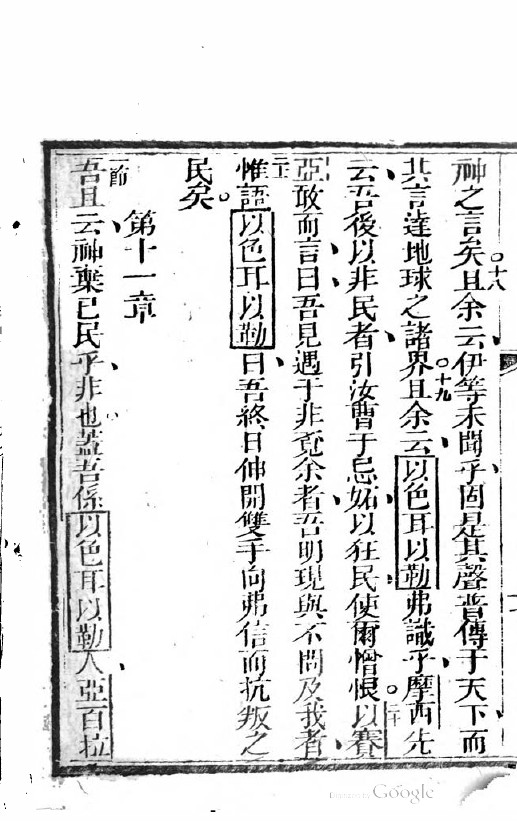 神之言矣且余云伊等未聞乎固是其聲普傳于天下而
十八
其言達地球之諸界且余云以色耳以勒弗識乎摩西先
十九
云吾後以非民者引汝曹于忌妬以狂民使爾憎恨以賽
二十
亞敢而言曰吾見遇于非覔余者吾明現與不問及我者
惟語以色耳以勒曰吾終日伸開雙手向弗信而抗叛之
民矣
第十一章
一節
吾且云神棄己民乎非也蓋吾係以色耳以勒人亞百拉
Google